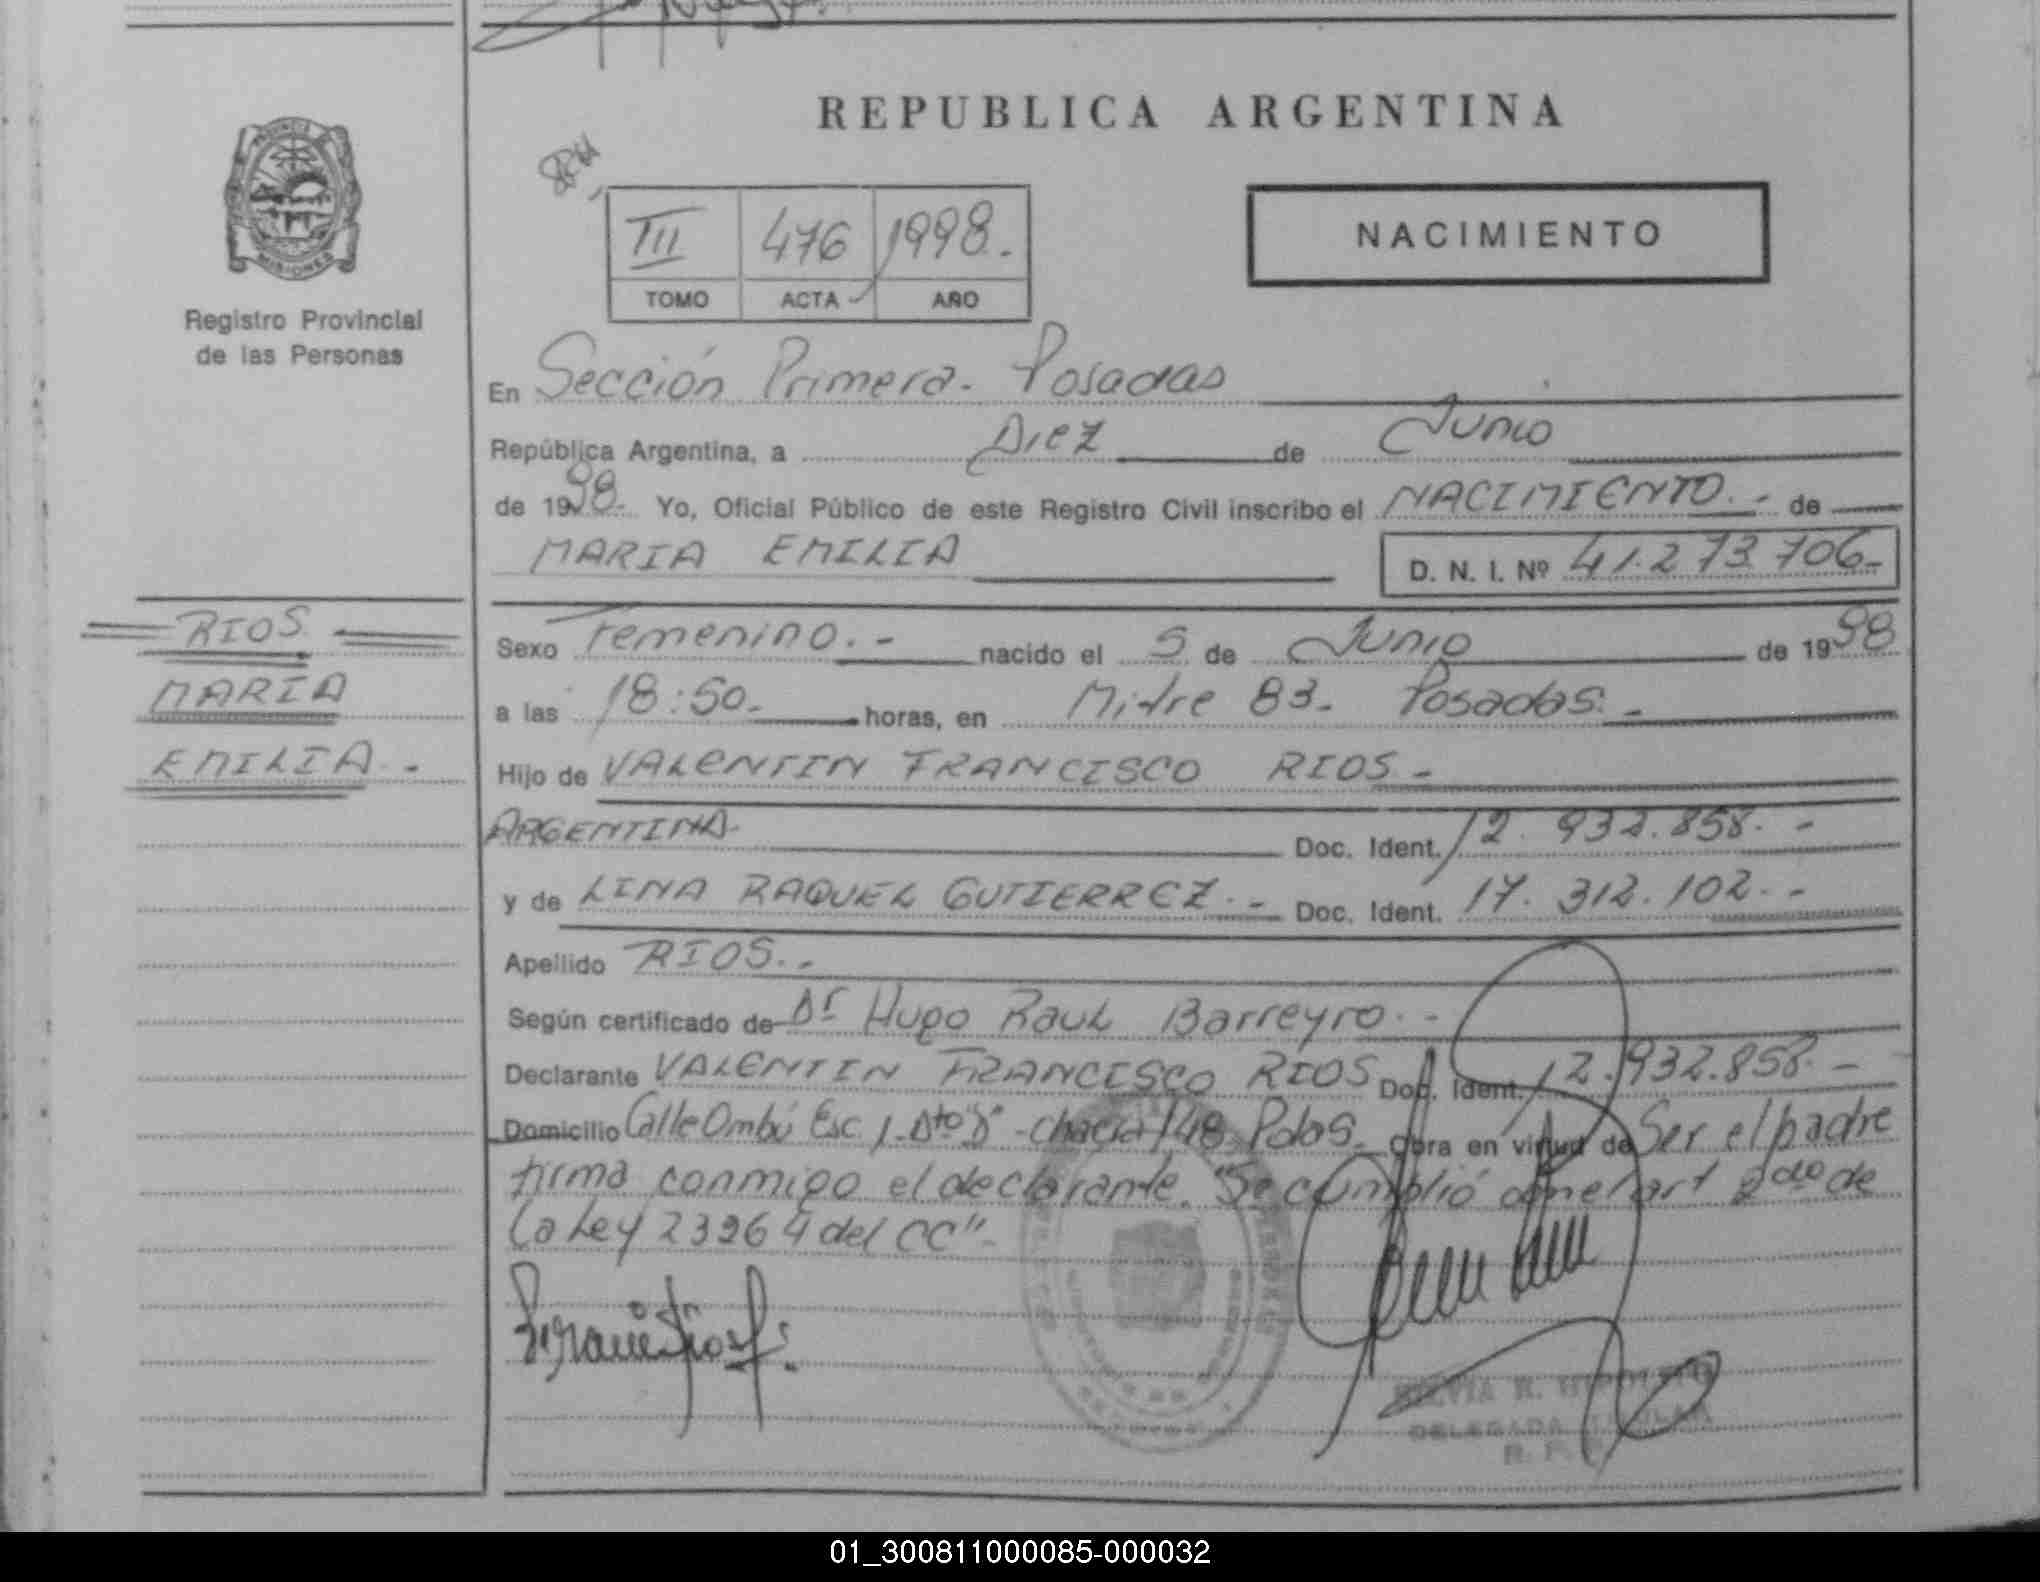 REPUBLICA ARGENTINA
PROVINCIA DE
MISIONES
Registro Provincial
de las Personas
III 476 1998.
TOMO ACTA AÑO
NACIMIENTO
En Sección Primera. Posadas
República Argentina, a Diez de Junio
de 1998. Yo, Oficial Público de este Registro Civil inscribo el NACIMIENTO.- de
MARIA EMILIA D. N. I. Nº 41.273.706-
RIOS
MARIA
EMILIA.-
Sexo Femenino.- nacido el 5 de Junio de 1998
a las 18:50.- horas, en Mitre 83. Posadas.-
Hijo de VALENTIN FRANCISCO RIOS.-
ARGENTINA- Doc. Ident. 12.932.858.-
y de LINA RAQUEL GUTIERREZ.- Doc. Ident. 17.312.102.-
Apellido RIOS.-
Según certificado de Dr Hugo Raul Barreyro.-
Declarante VALENTIN FRANCISCO RIOS Doc. Ident. 12.932.858.-
Domicilio Calle Ombú Esc 1-Dto "D" -chacra 148 Pdas. Obra en virtud de Ser el padre
firma conmigo el declarante. "Se cumplió con el art 2do de
la Ley 23264 del CC"-
SILVIA R.
DELEGADA TITULAR
R. P.
01_300811000085-000032